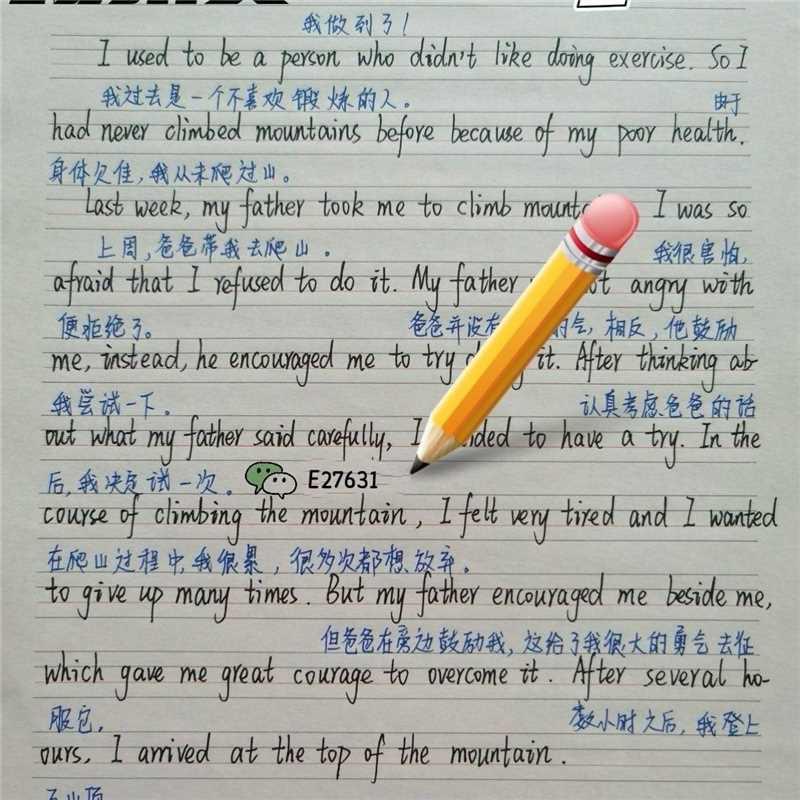 我做到了!
I used to be a person who didn't like doing exercise. So I
我过去是一个不喜欢锻炼的人。 由于
had never climbed mountains before because of my poor health.
身体欠佳,我从未爬过山。
Last week, my father took me to climb I was so
上周,爸爸带我去爬山。 我很害怕,
afraid that I refused to do it. My father angry with
便拒绝了。 爸爸并没有 气,相反,他鼓励
me, instead, he encouraged me to try it. After thinking ab-
我尝试一下。 认真考虑爸爸的话
out what my father said carefully, I to have a try. In the
后,我决定试一次。 E27631
course of climbing the mountain, I felt very tired and I wanted
在爬山过程中,我很累,很多次都想放弃。
to give up many times. But my father encouraged me beside me,
但爸爸在旁边鼓励我,这给了我很大的勇气去征
which gave me great courage to overcome it. After several ho-
服它。 数小时之后,我登上
ours, I arrived at the top of the mountain.